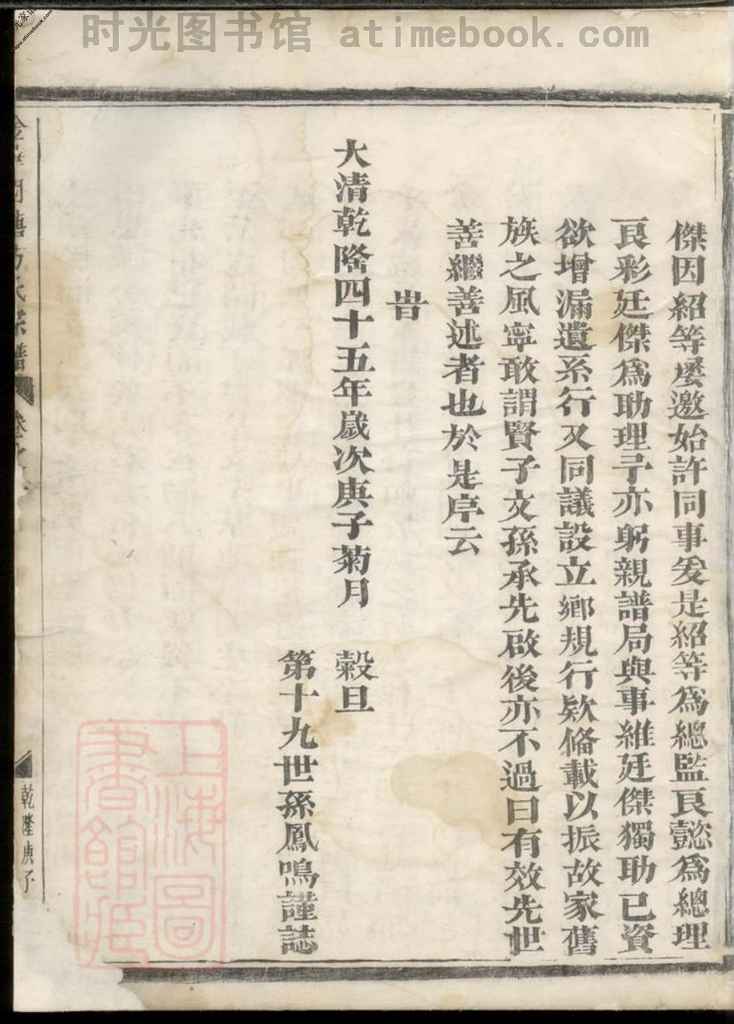 时光图书馆 atimebook.com
傑因紹等屡邀始許同事爰是紹等為總監良懿為總理
良彩廷傑為助理予亦躬親譜局與事維廷傑獨助已資
欲增漏遺系行又同議設立鄉規行欵俻載以振故家舊
族之風寧敢謂賢子文孫承先啟後亦不過曰有效先世
善繼善述者也於是序云
旹
大清乾隆四十五年歲次庚子菊月　穀旦
第十九世孫鳳鳴謹誌
氏宗譜
乾隆庚子
上海圖書館藏